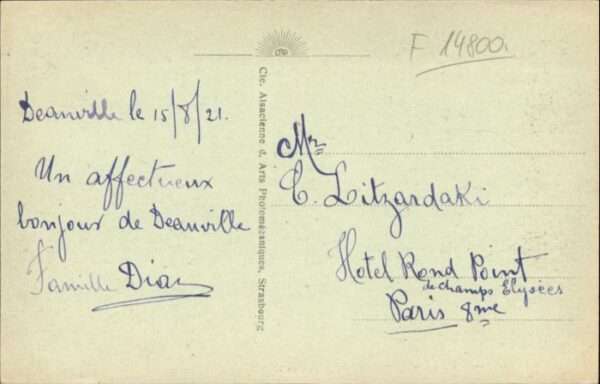 F 14800.
Deauville le 15/8/21.
Un affectueux
bonjour de Deauville
Famille Dian
Cie. Alsacienne d. Arts Photomécaniques, Strasbourg
Mr
E. Litzardaki
Hotel Rond Point
de Champs Elysées
Paris 8me